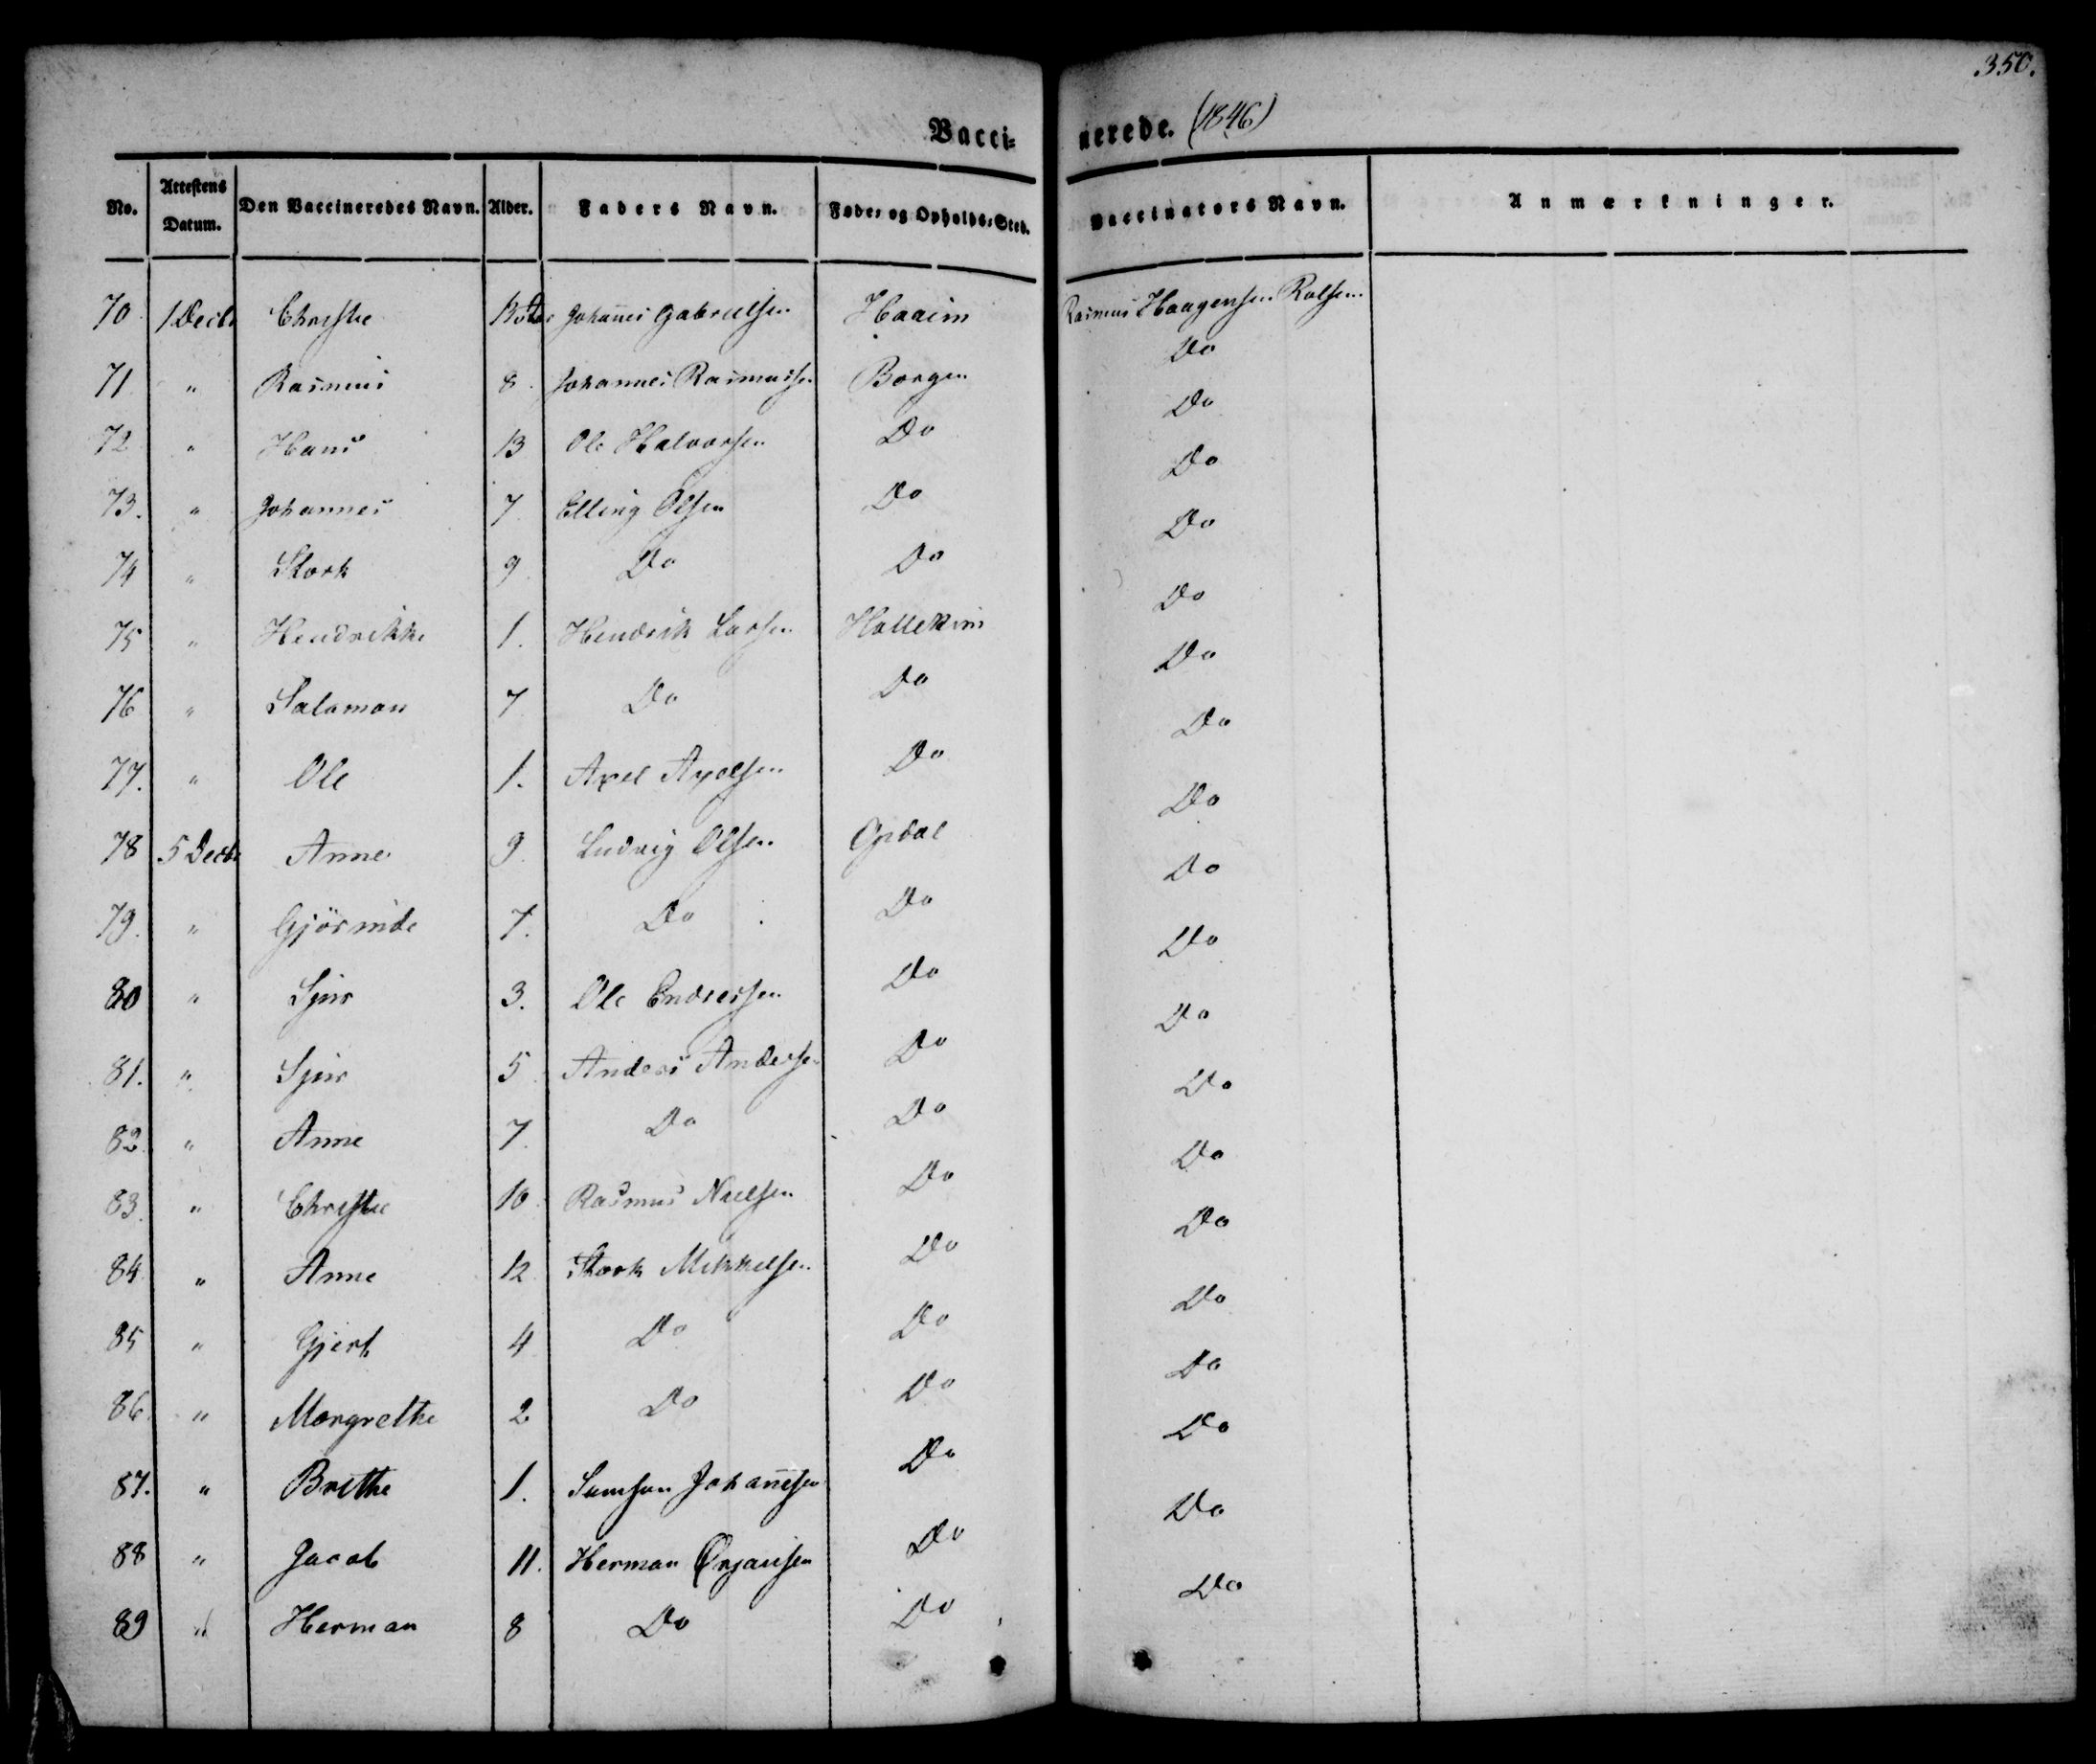 350.
Vacci- nerede. (1846)
No. Attestens Datum. Den Vaccineredes Navn. Alder. Faders Navn. Føde- og Opholds-Sted. Vaccinators Navn. Anmærkninger.
70 1 Decbr Christie Johanes Gabrielsen Haaeim Rasmus Haagensen Rolsen
71 " Rasmus 8. Johannes Rasmussen Borgen Do
72 " Hans 13 Ole Halvorsen Do Do
73. " Johannes 7 Elling Olsen Do Do
74 " Stork 9. Do Do Do
75 " Hendrikke 1. Hendrik Larsen Hallekim Do
76 " Salamon 7 Do Do Do
77. " Ole 1. Axel Axelsen Do Do
78 5 Decbr Anne 9. Ludvig Olsen Opdal Do
79. " Gjörinde 7. Do Do Do
80 " Sjur 3. Ole Endresen Do Do
81. " Sjur 5 Anders Andersen Do Do
82. " Anne 7. Do Do Do
83. " Christie 10. Rasmus Nielsen Do Do
84 " Anne 12 Stork Mikkelsen Do Do
85 " Gjert 4 Do Do Do
86. " Margrethe 2 Do Do Do
87. " Brithe 1. Samson Johanesen Do Do
88 " Jacob 11. Herman Ørjansen Do Do
89 " Herman 8 Do Do Do